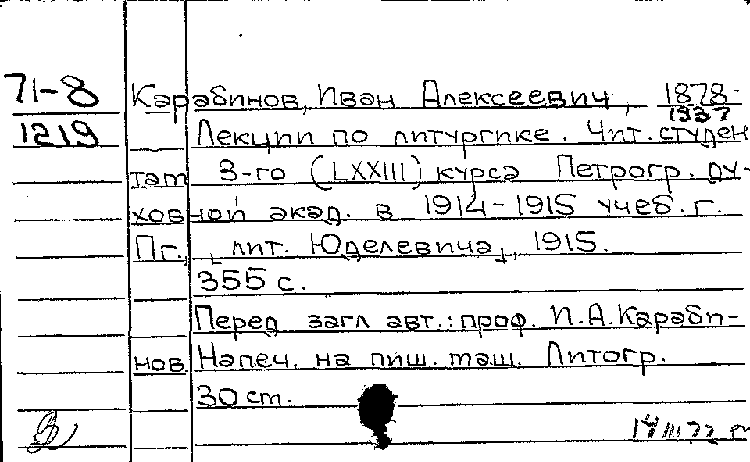 71-8 Карабинов, Иван Алексеевич, 1878-
1937
1219 Лекции по литургике. Чит. студен
там 3-го (LXXIII) курса Петрогр. ду-
ховной акад. в 1914-1915 учеб. г.
Пг., лит. Юделевича, 1915.
355 с.
Перед загл авт.: проф. И.А. Караби-
нов. Напеч. на пиш. маш. Литогр.
30 ст.